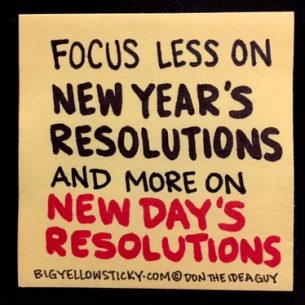 FOCUS LESS ON
NEW YEAR'S
RESOLUTIONS
AND MORE ON
NEW DAY'S
RESOLUTIONS
BIGYELLOWSTICKY.COM©DONTHEIDEAGUY